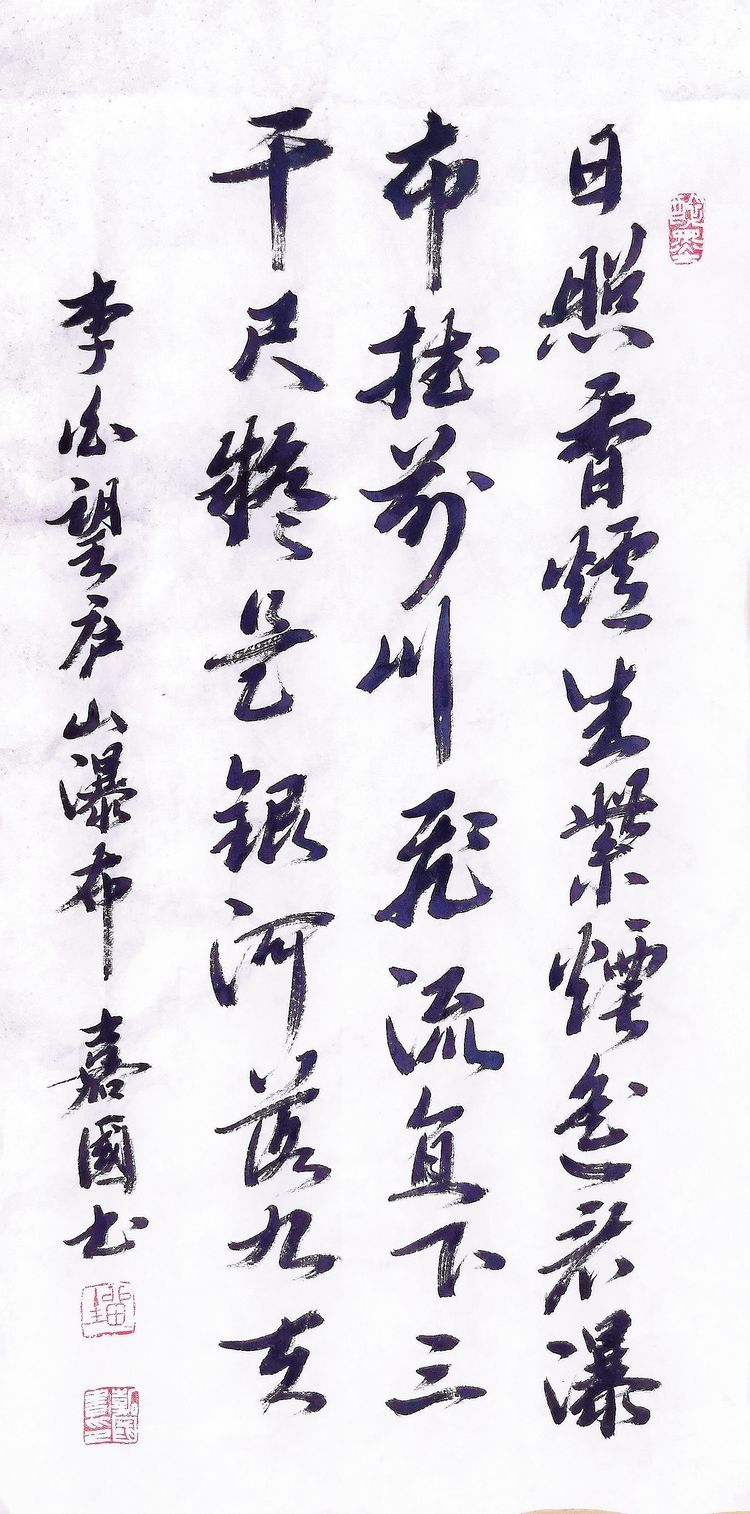 日照香爐生紫煙遙看瀑
布挂前川飛流直下三
千尺疑是銀河落九天
李白望庐山瀑布 嘉國书